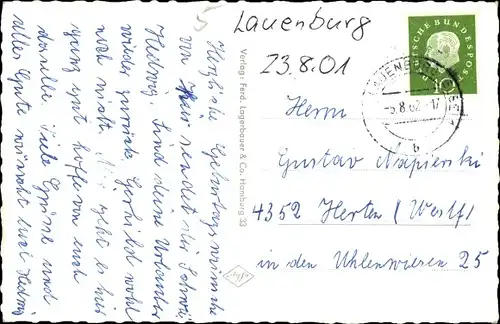 Lauenburg
23.8.01
5
DEUTSCHE BUNDESPOST
10
LAUENBURG
-5.8.62-17
b
Herrn
Gustav Napierski
4352 Herten (Westf)
in den Uhlenwiesen 25
Verlag: Ferd. Lagerbauer & Co. Hamburg 33
Agfa
Herzliche Geburtstagswünsche
von hier sendet
Hedwig. Sind deine Urlauber
wieder zurück, Gerhild wohl
noch nicht. Mir geht es hier
ganz gut hoffe von euch
dasselbe. Viele Grüsse und
alles Gute wünscht euch Hedwig